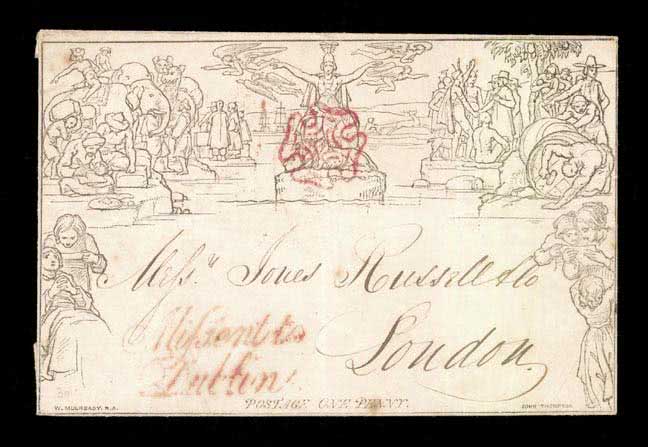 Mess.rs Jones Russell & Co
Missent to
Dublin.
London.
POSTAGE ONE PENNY.
W. MULREADY. R.A.
JOHN THOMPSON